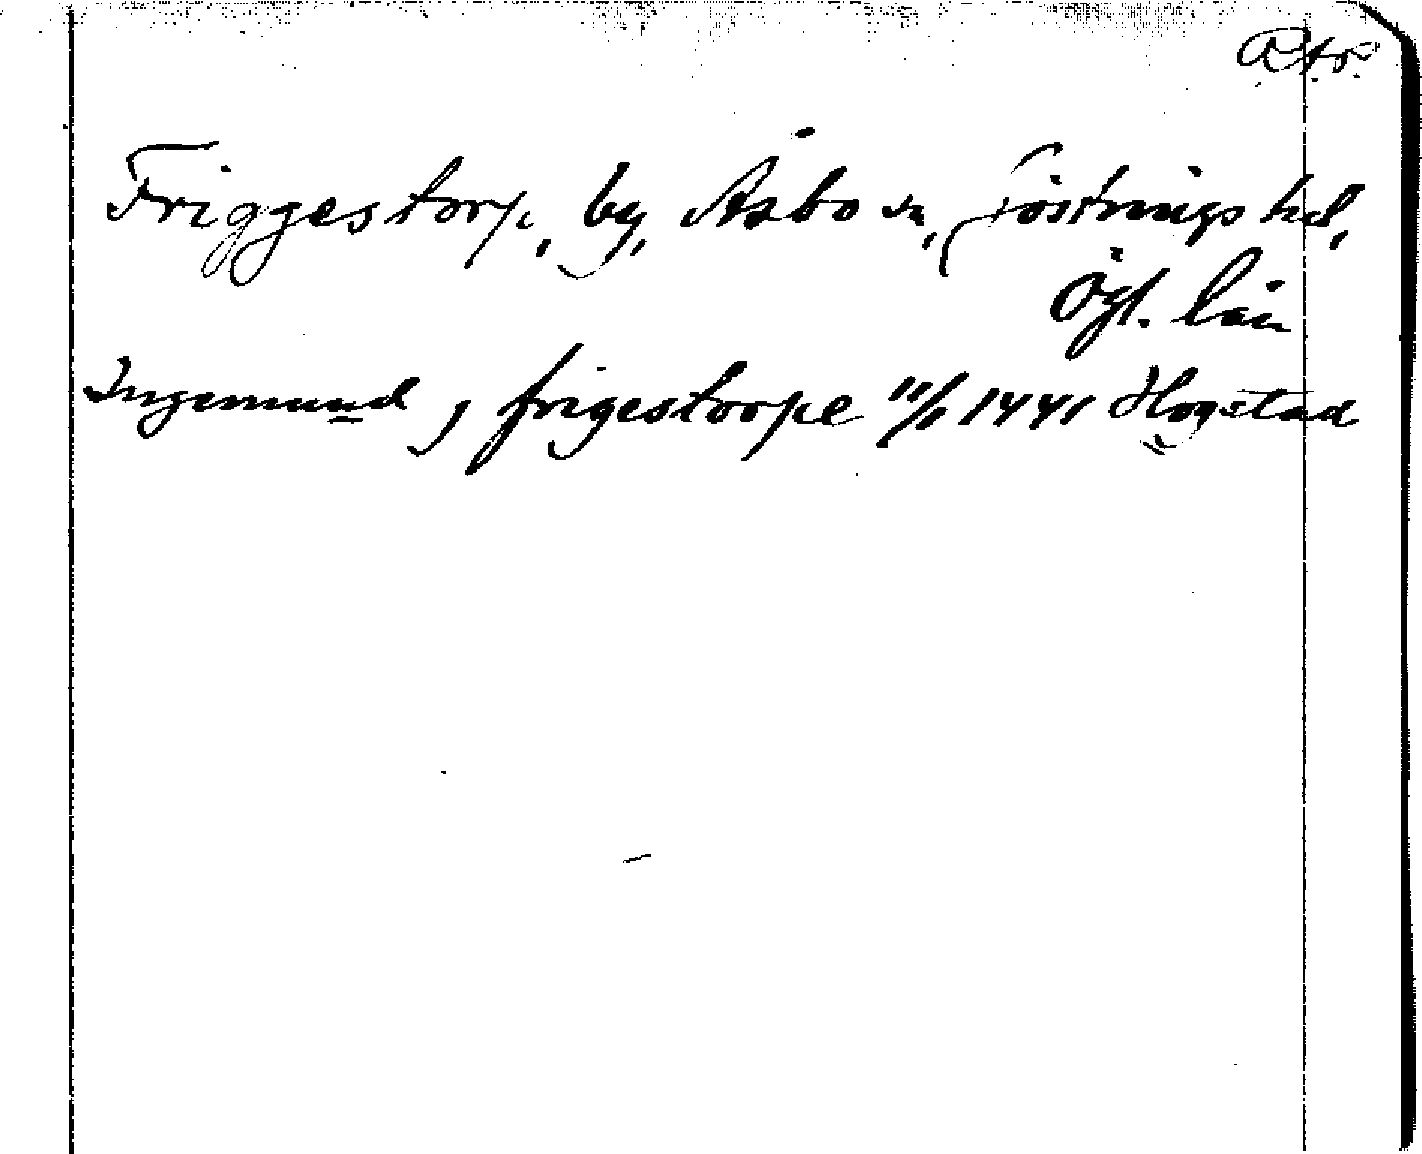 Friggestorp, by, Åsbo sn, Göstrings hd,
Ögl. län
Ingemund j frigestorpe 11/1 1441 Hogstad